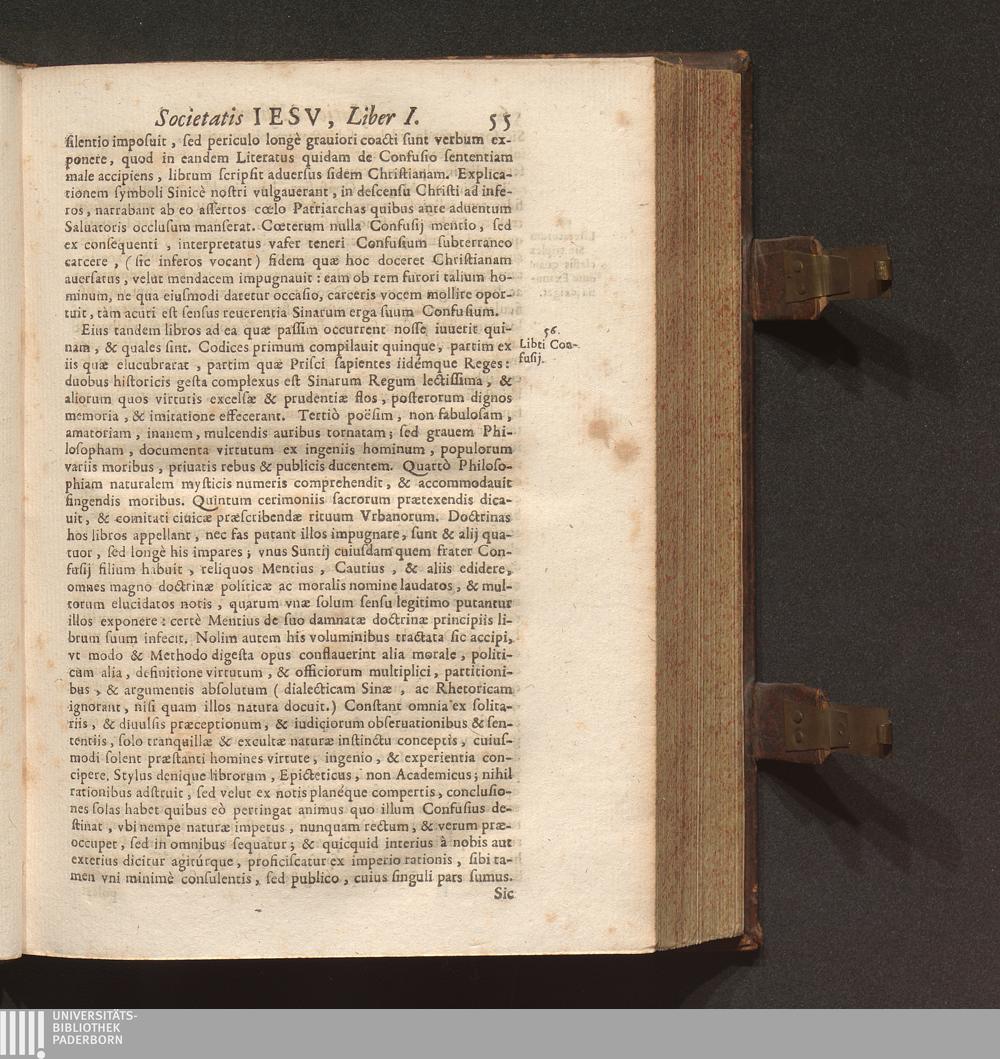 Societatis IESV, Liber I. 55
silentio imposuit, sed periculo longè grauiori coacti sunt verbum ex-
ponere, quod in eandem Literatus quidam de Confusio sententiam
male accipiens, librum scripsit aduersus fidem Christianam. Explica-
tionem symboli Sinicè nostri vulgauerant, in descensu Christi ad infe-
ros, narrabant ab eo assertos cœlo Patriarchas quibus ante aduentum
Saluatoris occlusum manserat. Cœterum nulla Confusij mentio, sed
ex consequenti, interpretatus vafer teneri Confusium subterraneo
carcere, (sic inferos vocant) fidem quæ hoc doceret Christianam
auersatus, velut mendacem impugnauit: eam ob rem furori talium ho-
minum, ne qua eiusmodi daretur occasio, carceris vocem mollire opor-
tuit, tàm acuti est sensus reuerentia Sinarum erga suum Confusium.
Eius tandem libros ad ea quæ passim occurrent nosse iuuerit qui-
nam, & quales sint. Codices primum compilauit quinque, partim ex
iis quæ elucubrarat, partim quæ Prisci sapientes iidémque Reges:
duobus historicis gesta complexus est Sinarum Regum lectissima, &
aliorum quos virtutis excelsæ & prudentiæ flos, posterorum dignos
memoria, & imitatione effecerant. Tertiò poësim, non fabulosam,
amatoriam, inanem, mulcendis auribus tornatam; sed grauem Phi-
losopham, documenta virtutum ex ingeniis hominum, populorum
variis moribus, priuatis rebus & publicis ducentem. Quartò Philoso-
phiam naturalem mysticis numeris comprehendit, & accommodauit
fingendis moribus. Quintum cerimoniis sacrorum prætexendis dica-
uit, & comitati ciuicæ præscribendæ rituum Vrbanorum. Doctrinas
hos libros appellant, nec fas putant illos impugnare, sunt & alij qua-
tuor, sed longè his impares; vnus Suntij cuiusdam quem frater Con-
fusij filium habuit, reliquos Mencius, Cautius, & aliis edidere,
omnes magno doctrinæ politicæ ac moralis nomine laudatos, & mul-
torum elucidatos notis, quarum vnæ solum sensu legitimo putantur
illos exponere: certè Mentius de suo damnatæ doctrinæ principiis li-
brum suum infecit. Nolim autem his voluminibus tractata sic accipi,
vt modo & Methodo digesta opus conflauerint alia morale, politi-
cum alia, definitione virtutum, & officiorum multiplici, partitioni-
bus, & argumentis absolutum (dialecticam Sinæ, ac Rhetoricam
ignorant, nisi quam illos natura docuit.) Constant omnia ex solita-
riis, & diuulsis præceptionum, & iudiciorum obseruationibus & sen-
tentiis, solo tranquillæ & excultæ naturæ instinctu conceptis, cuius-
modi solent præstanti homines virtute, ingenio, & experientia con-
cipere. Stylus denique librorum, Epicteticus, non Academicus; nihil
rationibus adstruit, sed velut ex notis planéque compertis, conclusio-
nes solas habet quibus eò pertingat animus quo illum Confusius de-
stinat, vbi nempe naturæ impetus, nunquam rectum, & verum præ-
occupet, sed in omnibus sequatur; & quicquid interius à nobis aut
exterius dicitur agitúrque, proficiscatur ex imperio rationis, sibi ta-
men vni minimè consulentis, sed publico, cuius singuli pars sumus.
Sic
56.
Libri Con-
fusij.
UNIVERSITÄTS-
BIBLIOTHEK
PADERBORN